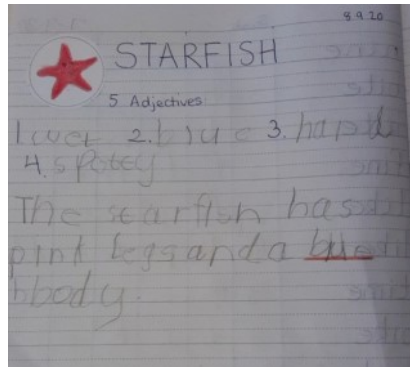 8.9.20
STARFISH
5 Adjectives
1. wet 2. blue 3. hapd
4. spotey
The starfish has
pink legs and a bue
bbody.